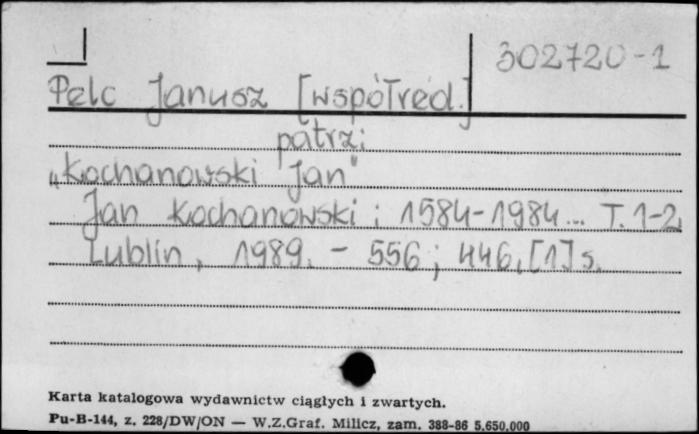 302720-1
Pelc Janusz [współred.]
patrz:
„Kochanowski Jan"
Jan Kochanowski : 1584-1984... T. 1-2.
Lublin, 1989. - 556 ; 446, [1] s.
Karta katalogowa wydawnictw ciągłych i zwartych.
Pu-B-144, z. 228/DW/ON — W.Z.Graf. Milicz, zam. 388-86 5.650.000